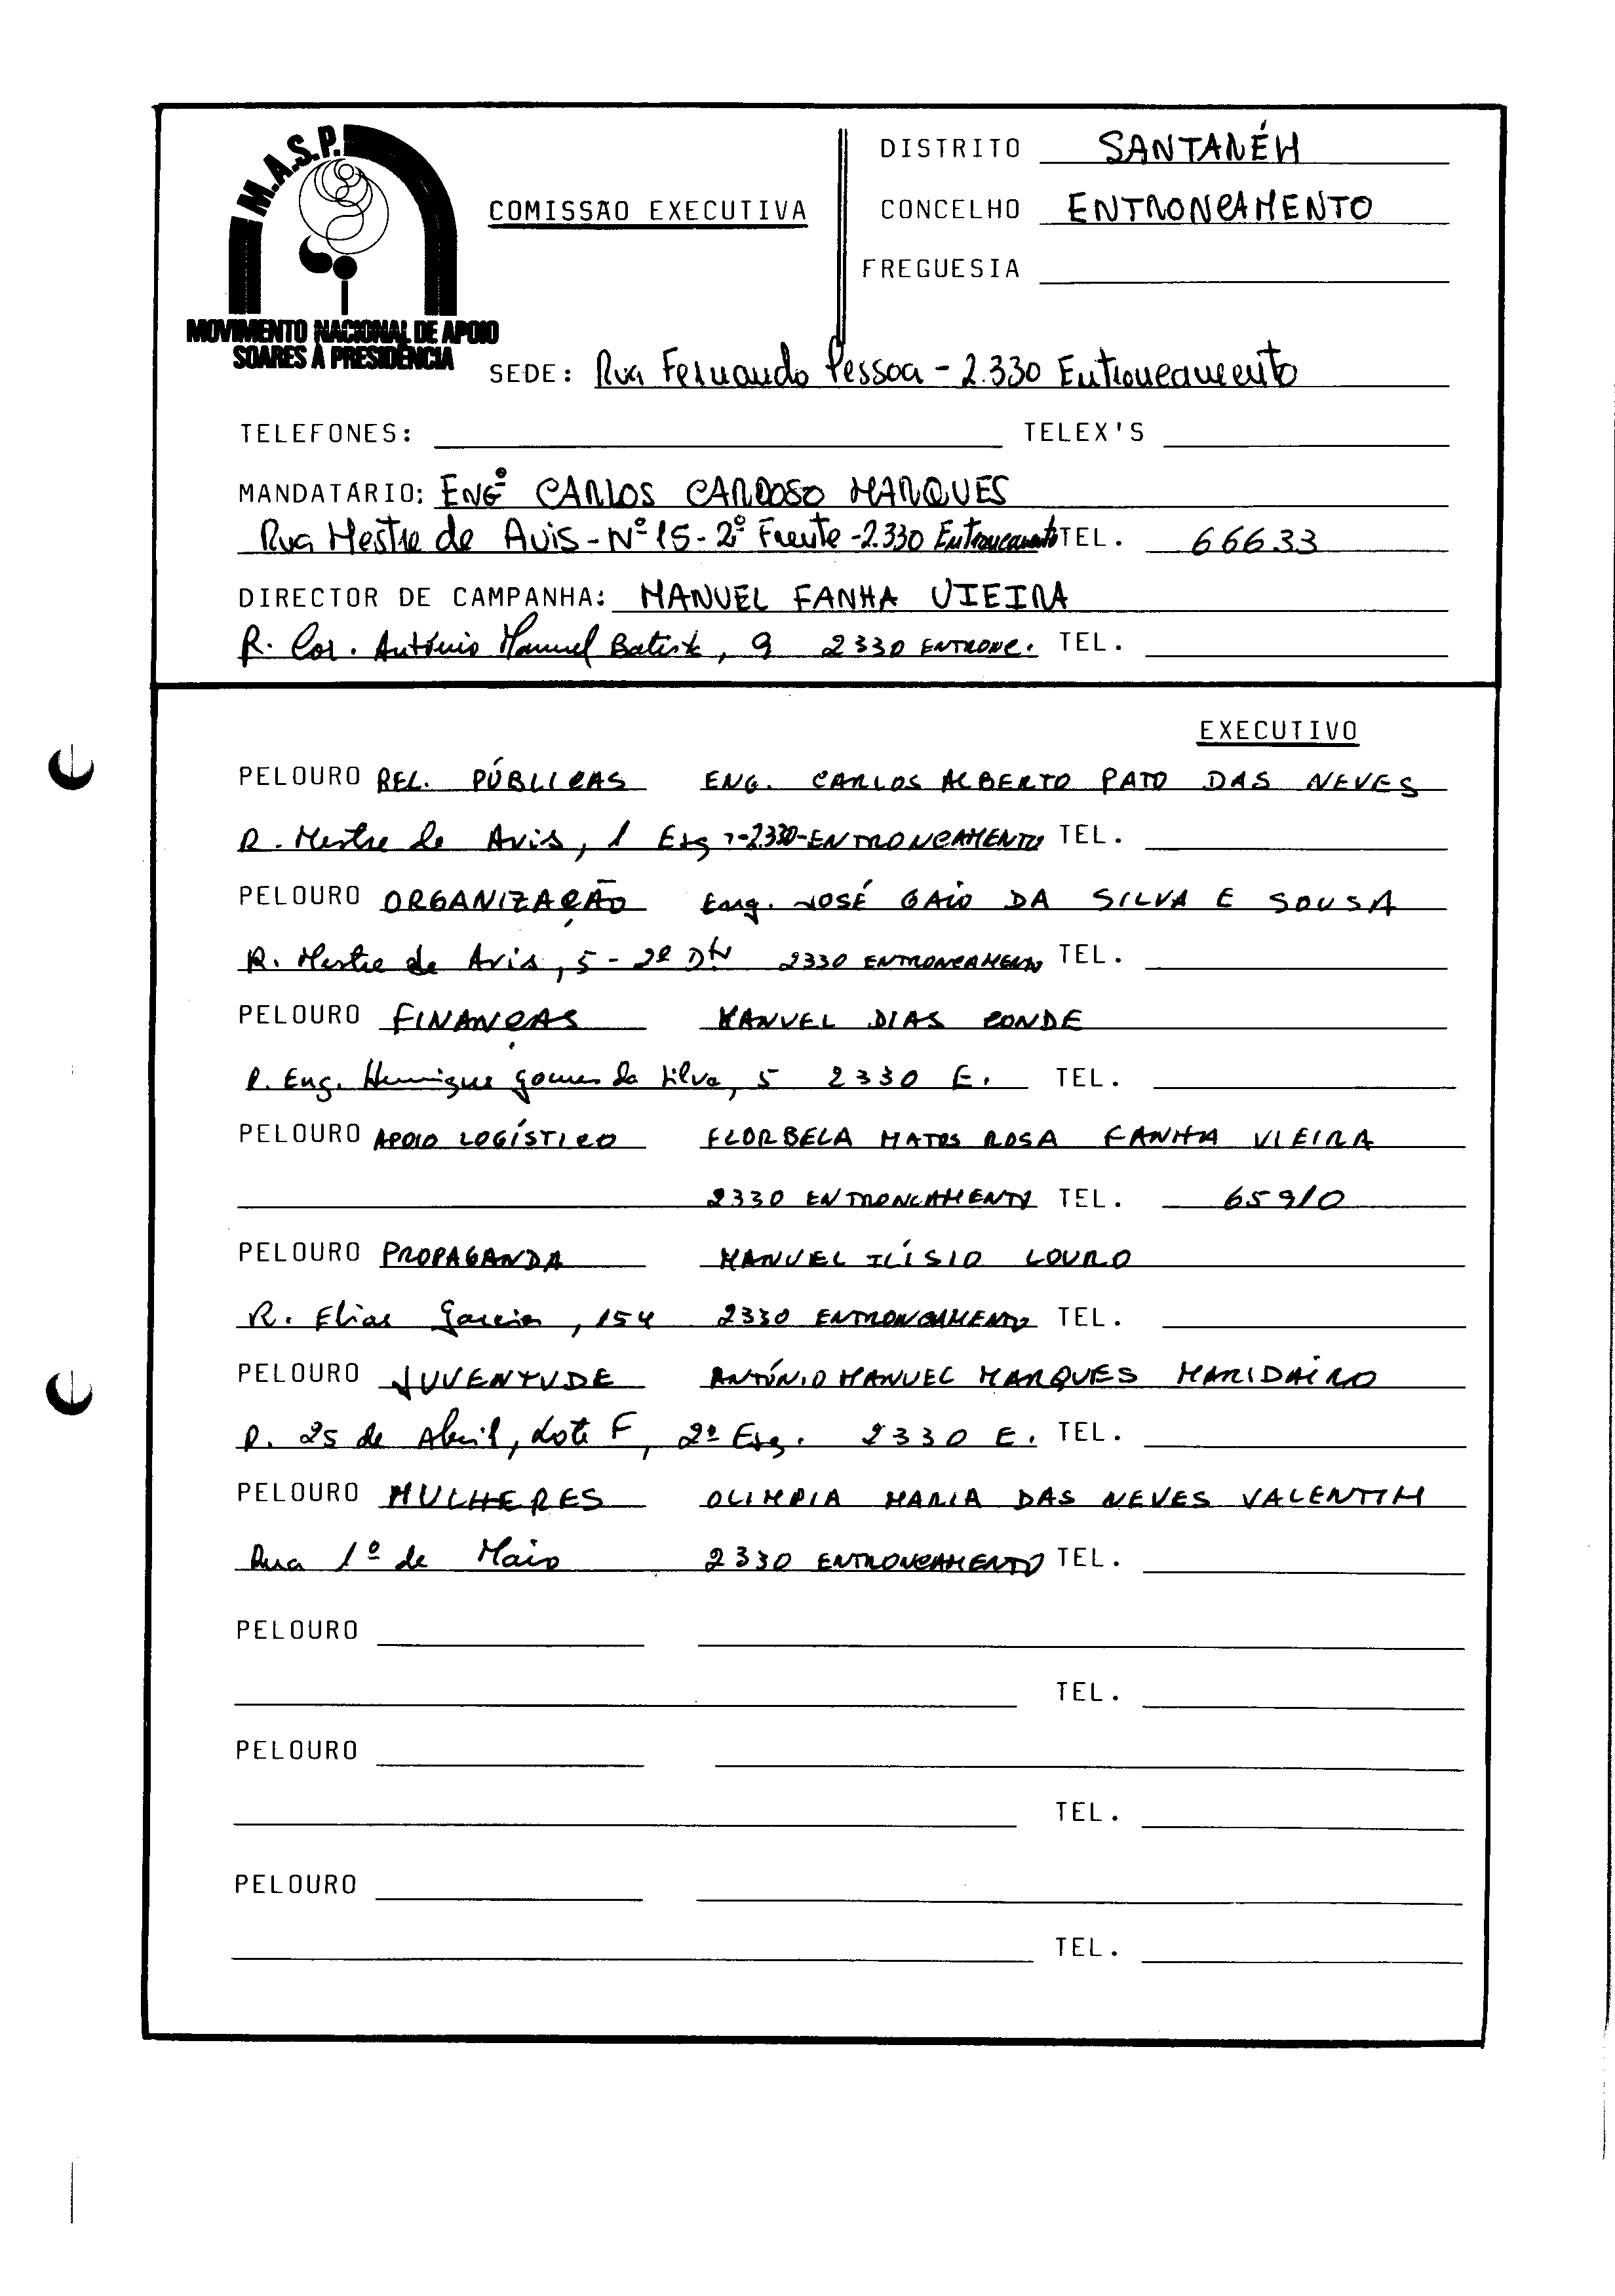 M.A.S.P.
MOVIMENTO NACIONAL DE APOIO
SOARES À PRESIDÊNCIA
COMISSÃO EXECUTIVA
DISTRITO SANTARÉM
CONCELHO ENTRONCAMENTO
FREGUESIA
SEDE: Rua Fernando Pessoa - 2.330 Entroncamento
TELEFONES: TELEX'S
MANDATÁRIO: ENGº CARLOS CARDOSO MARQUES
Rua Mestre de Avis - Nº 15 - 2º Frente - 2.330 Entroncamento TEL. 66633
DIRECTOR DE CAMPANHA: MANUEL FANHA VIEIRA
R. Cor. António Manuel Batista, 9 2330 ENTRONC. TEL.
EXECUTIVO
PELOURO REL. PÚBLICAS ENG. CARLOS ALBERTO PATO DAS NEVES
R. Mestre de Avis, 1 Esq - 2330 - ENTRONCAMENTO TEL.
PELOURO ORGANIZAÇÃO Eng. JOSÉ GAIO DA SILVA E SOUSA
R. Mestre de Avis, 5 - 2º Dto 2330 ENTRONCAMENTO TEL.
PELOURO FINANÇAS MANUEL DIAS CONDE
R. Eng. Henrique Gomes da Silva, 5 2330 E. TEL.
PELOURO APOIO LOGÍSTICO FLORBELA MATOS ROSA FANHA VIEIRA
2330 ENTRONCAMENTO TEL. 65910
PELOURO PROPAGANDA MANUEL ILÍSIO LOURO
R. Elias Garcia, 154 2330 ENTRONCAMENTO TEL.
PELOURO JUVENTUDE ANTÓNIO MANUEL MARQUES MARIDAIRO
R. 25 de Abril, Lote F, 2º Esq. 2330 E. TEL.
PELOURO MULHERES OLIMPIA MARIA DAS NEVES VALENTIM
Rua 1º de Maio 2330 ENTRONCAMENTO TEL.
PELOURO
TEL.
PELOURO
TEL.
PELOURO
TEL.